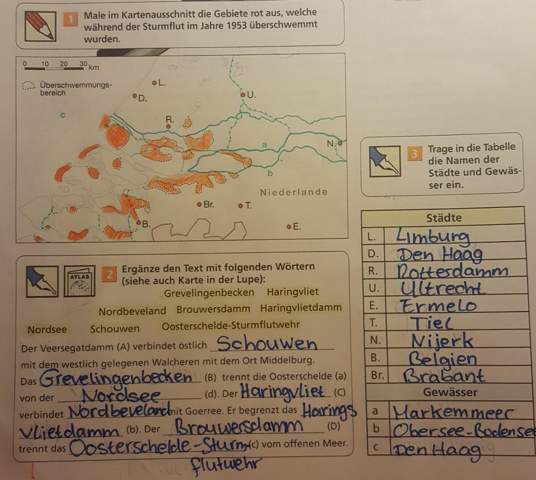 1 Male im Kartenausschnitt die Gebiete rot aus, welche
während der Sturmflut im Jahre 1953 überschwemmt
wurden.
0 10 20 30 km
Überschwemmungs-
bereich
L.
D.
U.
c
R.
a
N.
b
Niederlande
Br.
T.
B.
E.
3 Trage in die Tabelle
die Namen der
Städte und Gewäs-
ser ein.
Städte
L. Limburg
D. Den Haag
R. Rotterdamm
U. Ultrecht
E. Ermelo
T. Tiel
N. Nijerk
B. Belgien
Br. Brabant
Gewässer
a Markemmeer
b Obersee-Bodensee
c Den Haag
ATLAS
2 Ergänze den Text mit folgenden Wörtern
(siehe auch Karte in der Lupe):
Grevelingenbecken Haringvliet
Nordbeveland Brouwersdamm Haringvlietdamm
Nordsee Schouwen Oosterschelde-Sturmflutwehr
Der Veersegatdamm (A) verbindet östlich Schouwen
mit dem westlich gelegenen Walcheren mit dem Ort Middelburg.
Das Grevelingenbecken (B) trennt die Oosterschelde (a)
von der Nordsee (d). Der Haringvliet (C)
verbindet Nordbeveland mit Goerree. Er begrenzt das Harings
vlietdamm (b). Der Brouwersdamm (D)
trennt das Oosterschelde-Sturm (c) vom offenen Meer.
flutwehr